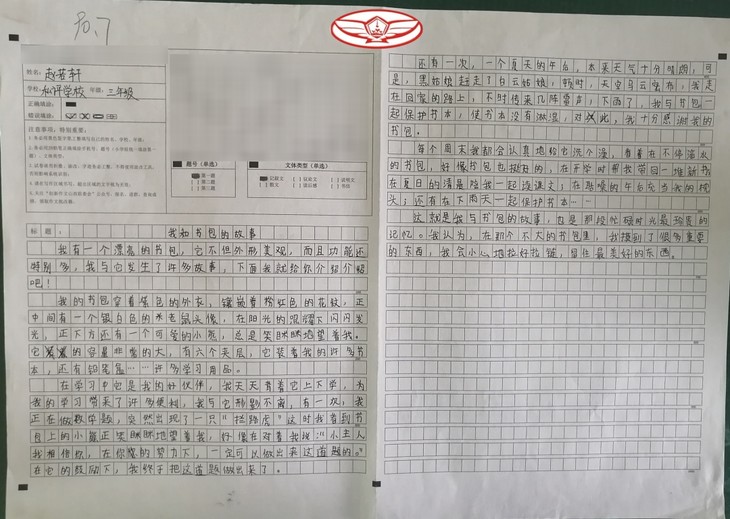 90.7
姓名：赵若轩
学校：和平学校 年级：三年级
正确填涂：
错误填涂：
注意事项，特别重要：
题号（单选）
文体类型（单选）
第一题
第二题
第三题
记叙文
议论文
说明文
散文
读后感
书信
标题：
我和书包的故事
我有一个漂亮的书包，它不但外形美观，而且功能还
特别多，我与它发生了许多故事，下面我就给你介绍介绍
吧！
我的书包穿着紫色的外衣，镶嵌着粉红色的花纹，正
中间有一个银白色的米老鼠头像，在阳光的照耀下闪闪发
光，正下方还有一个可爱的小熊，总是笑眯眯地望着我。
它的容量非常的大，有六个夹层，它装着我的许多书
本，还有铅笔盒……许多学习用品。
在学习中它是我的好伙伴，我天天背着它上下学，为
我的学习带来了许多便利，我与它形影不离，有一次，我
正在做数学题，突然出现了一只“拦路虎”这时我看到书
包上的小熊正笑眯眯地望着我，仿佛在对着我说：“小主人
我相信你，在你的努力下，一定可以做出来这道题的。”
在它的鼓励下，我终于把这道题做出来了。
还有一次，一个夏天的午后，本来天气十分晴朗，可
是，黑姑娘赶走了白云姑娘，顿时，天空乌云密布，我走
在回家的路上，不时传来几阵雷声，下雨了，我与书包一
起保护书本，使书本没有淋湿，对此，我十分感谢我的
书包。
每个周末我都会认真地给它洗个澡，看着在不停滴水
的书包，好像书包也挺好的，在开学时帮我带回一堆新书
在夏日的清晨陪我一起读课文；在的午后充当我的枕
头；还有在下雨天一起保护书本……
这就是我与书包的故事，也是那段忙碌时光最珍贵的
记忆。我认为，在那个不大的书包里，我摸到了很多重要
的东西，我会小心地拉好拉链，留住最美好的东西。